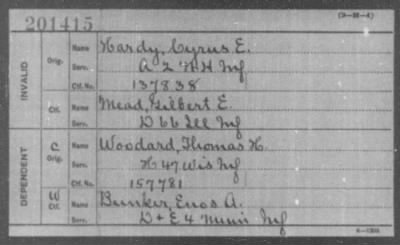 (3-24-4)
201415
INVALID
Orig.
Name Hardy, Cyrus E.
Serv. A 2 N H Inf
Ctf. No. 137838
Ctf.
Name Mead, Gilbert E.
Serv. D 66 Ill Inf
DEPENDENT
C
Orig.
Name Woodard, Thomas H.
Serv. H 47 Wis Inf
Ctf. No. 157781
W
Ctf.
Name Bunker, Enos A.
Serv. D + E 4 Minn Inf